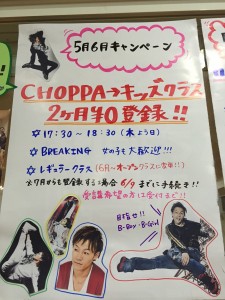 5月6月キャンペーン
CHOPPA→キッズクラス
2ヶ月半0登録!!
17:30~18:30 (木よう日)
BREAKING 女の子も大歓迎!!!
レギュラークラス (6月~オープンクラスに変更!!)
※7月からも登録する場合 6/9 までに手続き!!
受講希望の方は受付まで!!
目指せ!!
B-Boy・B-Girl